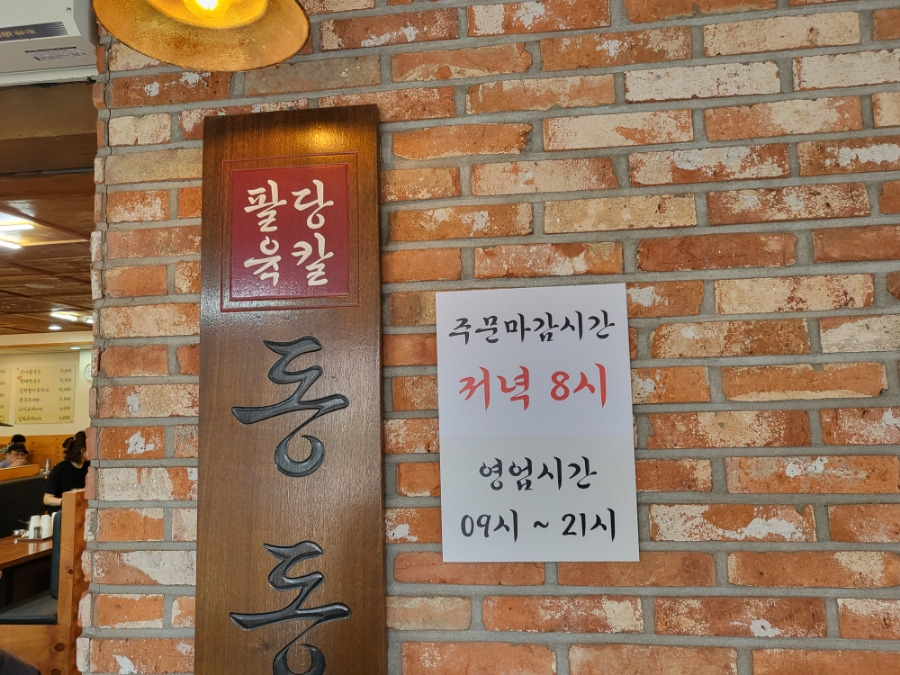 팔당
육칼
동
동
주문마감시간
저녁 8시
영업시간
09시 ~ 21시